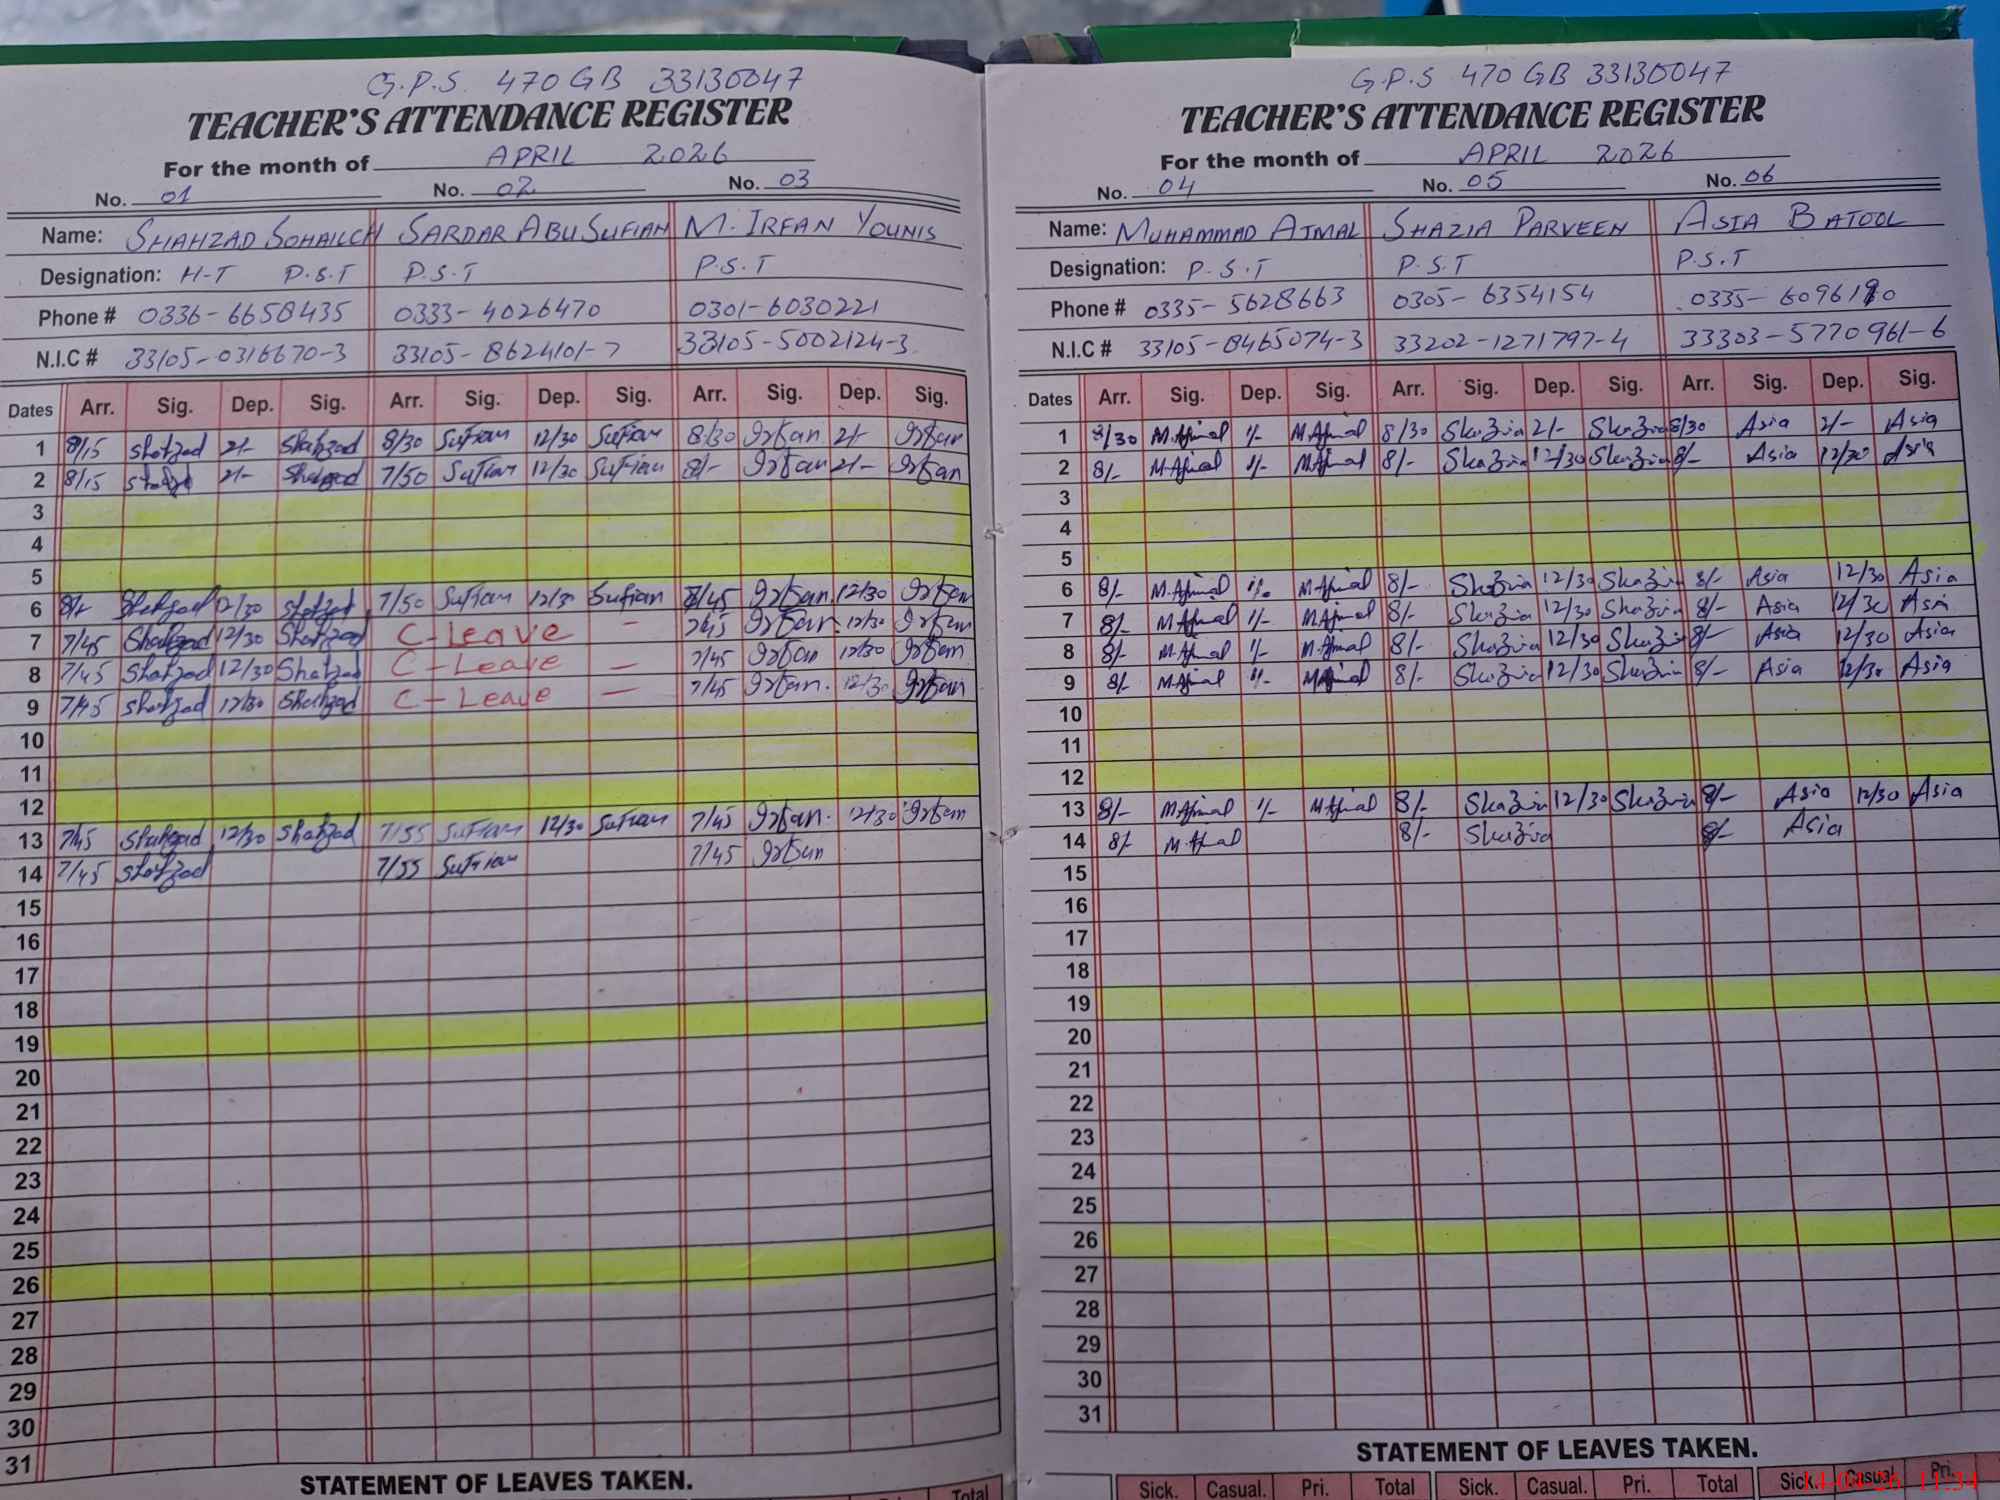 G.P.S. 470 GB 33130047
TEACHER'S ATTENDANCE REGISTER
For the month of APRIL 2026
No. 01 No. 02 No. 03
Name: SHAHZAD SOHAIL CH SARDAR ABU SUFIAN M. IRFAN YOUNIS
Designation: H-T P.S.T P.S.T P.S.T
Phone # 0336-6658435 0333-4026470 0301-6030221
N.I.C # 33105-0316670-3 33105-8624101-7 33105-5002124-3
Dates Arr. Sig. Dep. Sig. Arr. Sig. Dep. Sig. Arr. Sig. Dep. Sig.
1 8/15 Shahzad 2/- Shahzad 8/30 Sufian 12/30 Sufian 8/30 Irfan 2/- Irfan
2 8/15 Shahzad 2/- Shahzad 7/50 Sufian 12/30 Sufian 8/- Irfan 2/- Irfan
3
4
5
6 8/- Shahzad 12/30 Shahzad 7/50 Sufian 12/30 Sufian 7/45 Irfan. 12/30 Irfan
7 7/45 Shahzad 12/30 Shahzad C-Leave – 7/45 Irfan. 12/30 Irfan
8 7/45 Shahzad 12/30 Shahzad C-Leave – 7/45 Irfan 12/30 Irfan
9 7/45 Shahzad 12/30 Shahzad C-Leave – 7/45 Irfan. 12/30 Irfan
10
11
12
13 7/45 Shahzad 12/30 Shahzad 7/55 Sufian 12/30 Sufian 7/45 Irfan. 12/30 Irfan
14 7/45 Shahzad 7/55 Sufian 7/45 Irfan
15
16
17
18
19
20
21
22
23
24
25
26
27
28
29
30
31
STATEMENT OF LEAVES TAKEN.
Total
G.P.S 470 GB 33130047
TEACHER'S ATTENDANCE REGISTER
For the month of APRIL 2026
No. 04 No. 05 No. 06
Name: MUHAMMAD AJMAL SHAZIA PARVEEN ASIA BATOOL
Designation: P.S.T P.S.T P.S.T
Phone # 0335-5628663 0305-6354154
N.I.C # 33105-8465074-3 33202-1271797-4 33303-5770961-6
Dates Arr. Sig. Dep. Sig. Arr. Sig. Dep. Sig. Arr. Sig. Dep. Sig.
1 8/30 M.Ajmal 1/- M.Ajmal 8/30 Shazia 2/- Shazia 8/30 Asia 2/- Asia
2 8/- M.Ajmal 1/- M.Ajmal 8/- Shazia 12/30 Shazia 8/- Asia 12/30 Asia
3
4
5
6 8/- M.Ajmal 1/- M.Ajmal 8/- Shazia 12/30 Shazia 8/- Asia 12/30 Asia
7 8/- M.Ajmal 1/- M.Ajmal 8/- Shazia 12/30 Shazia 8/- Asia 12/30 Asia
8 8/- M.Ajmal 1/- M.Ajmal 8/- Shazia 12/30 Shazia 8/- Asia 12/30 Asia
9 8/- M.Ajmal 1/- M.Ajmal 8/- Shazia 12/30 Shazia 8/- Asia 12/30 Asia
10
11
12
13 8/- M.Ajmal 1/- M.Ajmal 8/- Shazia 12/30 Shazia 8/- Asia 12/30 Asia
14 8/- M.Ajmal 8/- Shazia 8/- Asia
15
16
17
18
19
20
21
22
23
24
25
26
27
28
29
30
31
STATEMENT OF LEAVES TAKEN.
Sick. Casual. Pri. Total Sick. Casual. Pri. Total Sick. Casual. Pri.
14-04-26 11:34